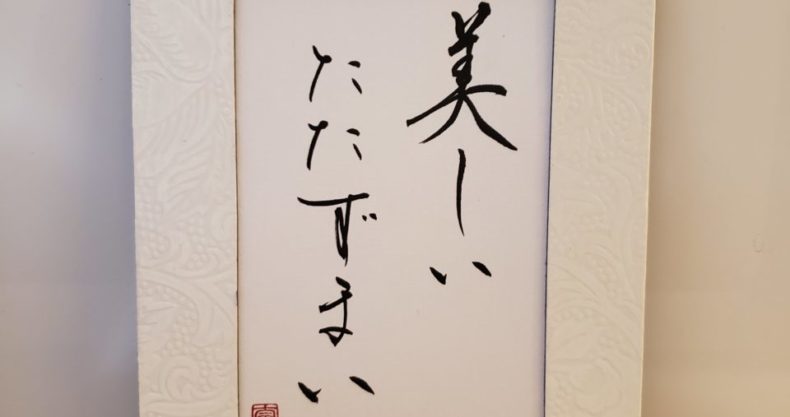 美しい
たたずまい